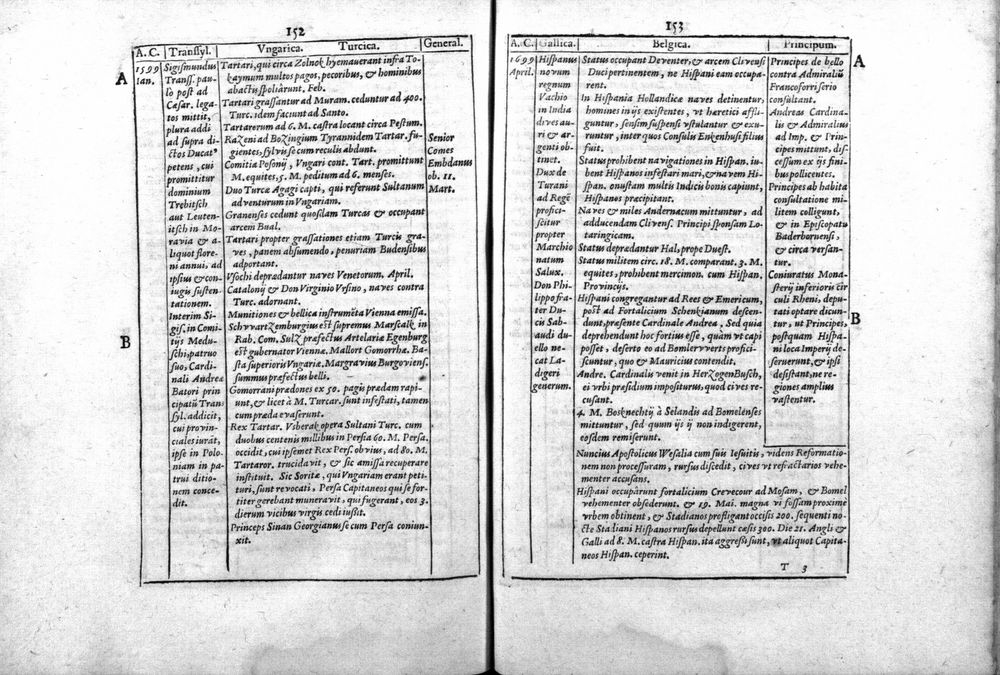 152
A.C. Transsyl. Vngarica. Turcica. General.
1599
Ian.
A
B
Sigismundus
Transs. pau-
lo post ad
Cæsar. lega-
tos mittit,
plura addi
ad supra di-
ctos Ducat⁹
petens, cui
promittitur
dominium
Trebitsch
aut Leuten-
itsch in Mo-
ravia & a-
liquot flore-
ni annui, ad
ipsius & con-
iugis susten-
tationem.
Interim Si-
gis. in Comi-
tijs Medu-
schi, patruo
suo, Cardi-
nali Andreæ
Batori prin
cipatũ Trans
syl. addicit,
cui provin-
ciales iurāt,
ipse in Polo-
niam in pa-
trui ditio-
nem conce-
dit.
Tartari, qui circa Zolnok hyemauerant infra To-
kaymum multos pagos, pecoribus, & hominibus
abactis spoliârunt. Feb.
Tartari grassantur ad Muram. ceduntur ad 400.
Turc. idem faciunt ad Santo.
Tartarorum ad 6. M. castra locant circa Pestum.
Razeni ad Bozingium Tyrannidem Tartar. fu-
gientes, sylvis se cum reculis abdunt.
Comitia Posonij, Vngari cont. Tart. promittunt
M. equites. 5. M. peditum ad 6. menses.
Duo Turcæ Agagi capti, qui referunt Sultanum
adventurum in Vngariam.
Granenses cedunt quosdam Turcas & occupant
arcem Bual.
Tartari propter grassationes etiam Turcis gra-
ves, panem absumendo, penuriam Budensibus
adportant.
Vsochi deprædantur naves Venetorum. April.
Catalonij & Don Virginio Vrsino, naves contra
Turc. adornant.
Munitiones & bellica instrumẽta Vienna emissa.
Schvvartzemburgius est supremus Marscalk in
Rab. Com. Sulz præfectus Artelariæ Egenburg
est gubernator Viennæ. Mallort Gomorrhæ. Ba-
sta superioris Vngariæ. Margravius Burgoviens.
summus præfectus belli.
Gomorrani prædones ex 50. pagis prædam rapi-
unt, & licet à M. Turcar. sunt infestati, tamen
cum præda evaserunt.
Rex Tartar. Vsberak opera Sultani Turc. cum
duobus centenis millibus in Persia 60. M. Persa.
occidit, cui ipsemet Rex Pers. obvius, ad 80. M.
Tartaror. trucidavit, & sic amissa recuperare
instituit. Sic Soritæ, qui Vngariam erant peti-
turi, sunt revocati, Persa Capitaneos qui se for-
titer gerebant muneravit, qui fugerant, eos 3.
dierum vicibus virgis cedi iussit.
Princeps Sinan Georgianus se cum Persa coniun-
xit.
Senior
Comes
Embdanus
ob. 11.
Mart.
153
A.C. Gallica. Belgica. Principum.
1699
April.
Hispanus
novum
regnum
Vachio
in India
dives au-
ri & ar-
genti ob-
tinet.
Dux de
Turani
ad Regẽ
profici-
scitur
propter
Marchio
natum
Salux.
Don Phi-
lippo fra-
ter Du-
cis Sab-
audi du-
ello ne-
cat La-
digeri
generum.
Status occupant Deventer, & arcem Clivensi
Duci pertinentem, ne Hispani eam occupa-
rent.
In Hispania Hollandicæ naves detinentur,
homines in ijs existentes, vt hæretici affli-
guntur, sensim suspensi vstulantur & exu-
runtur, inter quos Consulis Enkenhusi filius
fuit.
Status prohibent navigationes in Hispan. iu-
bent Hispanos infestari mari, & navem Hi-
span. onustam multis Indicis bonis capiunt,
Hispanos præcipitant.
Naves & miles Andernacum mittuntur, ad
adducendam Clivens. Principi sponsam Lo-
taringicam.
Status deprædantur Hal, prope Duest.
Status militem circ. 18. M. comparant. 3. M.
equites, prohibent mercimon. cum Hispan.
Provincijs.
Hispani congregantur ad Rees & Emericum,
post ad Fortalicium Schenkianum descen-
dunt, præsente Cardinale Andrea, Sed quia
deprehendunt hoc fortius esse, quàm vt capi
posset, deserto eo ad Bomlervverts profici-
scuntur, quo & Mauricius contendit.
Andre. Cardinalis venit in HerzogenBusch,
ei vrbi præsidium impositurus, quod cives re-
cusant.
4. M. Bosknechtij à Selandis ad Bomelenses
mittuntur, sed quum ijs ij non indigerent,
eosdem remiserunt.
Nuncius Apostolicus Wesalia cum suis Iesuitis, videns Reformatio-
nem non processuram, rursus discedit, cives vt refractarios vehe-
menter accusans.
Hispani occupârunt fortalicium Crevecour ad Mosam, & Bomel
vehementer obsederunt. & 19. Mai. magna vi fossam proximè
vrbem obtinent, & Stadianos profligant occisis 200. sequenti no-
cte Stadiani Hispanos rursus depellunt cæsis 300. Die 21. Angli &
Galli ad 8. M. castra Hispan. ita aggressi sunt, vt aliquot Capita-
neos Hispan. ceperint.
Principes de bello
contra Admiraliũ
Francofortis serio
consultant.
Andreas Cardina-
lis & Admiralius
ad Imp. & Prin-
cipes mittunt, dis-
cessum ex ijs fini-
bus pollicentes.
Principes ab habita
consultatione mi-
litem colligunt,
& in Episcopatu
Baderbornensi,
& circa versan-
tur.
Coniuratus Mona-
sterij inferioris cir
culi Rheni, depu-
tati optare dicun-
tur, ut Principes,
postquam Hispa-
ni loca Imperij de-
seruerunt, & ipsi
desistant, ne re-
giones amplius
vastentur.
A
B
T 3